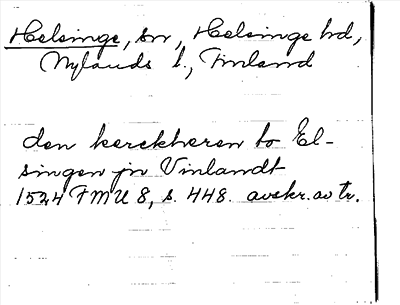 Helsinge, sn, Helsinge hd,
Nylands l., Finland
den kerckheren to El-
singen jn Vinlandt
1524 FMU 8, s. 448. avskr. av tr.